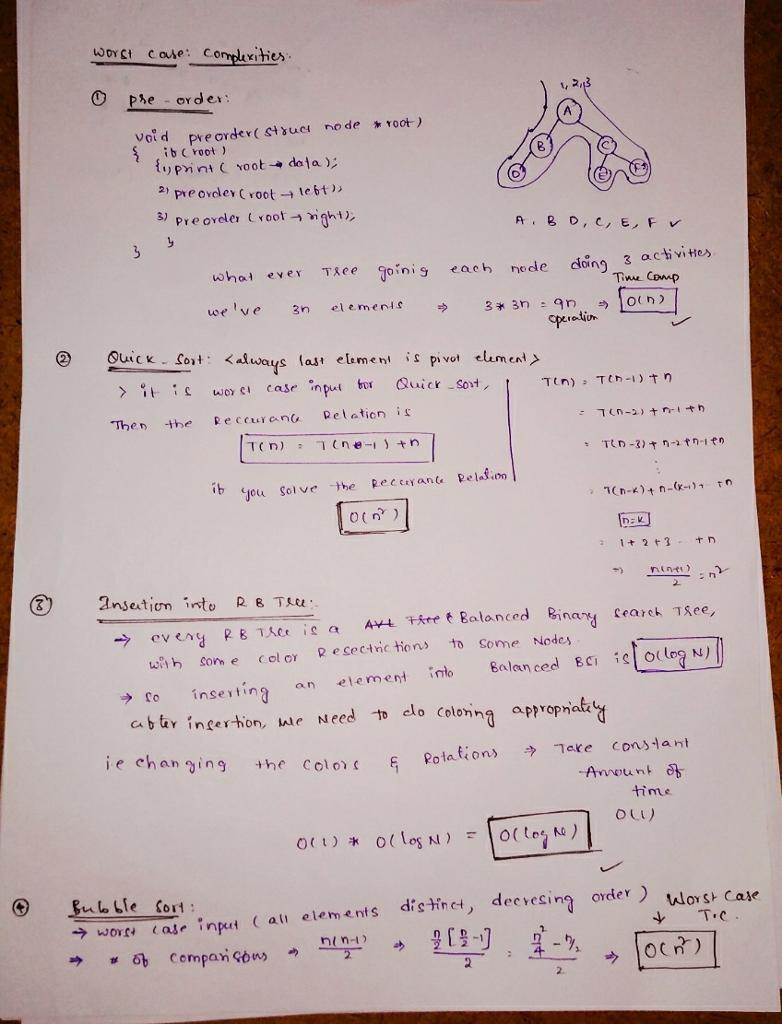 Worst case: Complexities:
① pre-order:
1, 2, 3
A
B
C
D
E
F
void preorder(struct node *root)
{ if(root)
{ 1) print( root → data);
2) preorder(root → left);
3) preorder (root → right);
}
}
A, B D, C, E, F ✓
what ever Tree goinig each node doing 3 activities.
Time Comp
we've 3n elements ⇒ 3*3n = 9n ⇒ O(n)
operation
② Quick-Sort: <always last element is pivot element>
> it is worst case input for Quick-sort,
Then the Reccurance Relation is
T(n) = T(n-1) + n
if you solve the Reccurance Relation
O(n²)
T(n) = T(n-1) + n
= T(n-2) + n-1 + n
= T(n-3) + n-2 + n-1 + n
⋮
= T(n-k) + n-(k-1) + + n
n=k
= 1+2+3 .. + n
⇒ n(n+1)/2 = n²
③ Insertion into RB Tree:
→ every RB Tree is a AVL Tree & Balanced Binary Search Tree,
with some color Resectrictions to some Nodes.
→ so inserting an element into Balanced BST is O(log N)
after insertion, we Need to do coloring appropriately
ie changing the colors & Rotations ⇒ Take constant
Amount of
time
O(1)
O(1) * O(log N) = O(log N)
④ Bubble Sort:
→ worst case input (all elements distinct, decresing order)
Worst Case
T.C.
⇒ # of comparisons ⇒ n(n-1)/2 ⇒ n/2[n/2-1]/2 = n²/4 - n/2 /2 ⇒ O(n²)